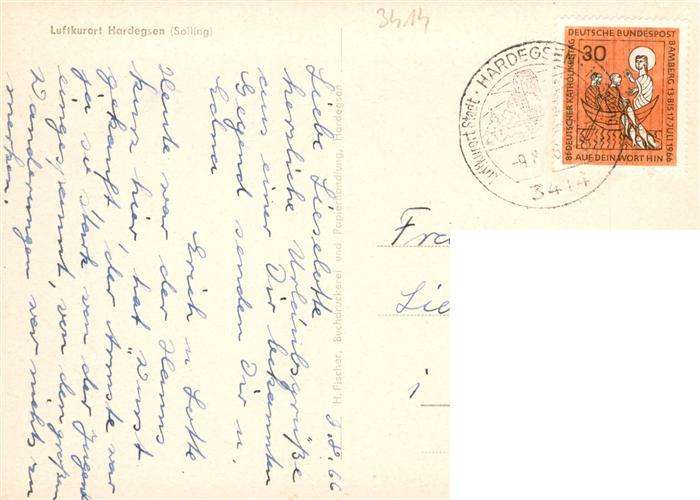 Luftkurort Hardegsen (Solling)
3414
8. 8. 66
Liebe Lieselotte
herzliche Urlaubsgrüße
aus einer Dir bekannten
Gegend senden Dir u.
Edna
Erich u Lotte.
Heute war der Hanns
kurz hier, hat Wurst
gekauft, der Ärmste war
ja so stark von der Jugend
eingespannt, von den großen
Wanderungen war nichts zu
merken.
H. Fischer, Buchdruckerei und Papierhandlung, Hardegsen
Luftkurort Stadt · HARDEGSEN
-9. 8.
3414
30
DEUTSCHE BUNDESPOST
BAMBERG 13. BIS 17. JULI 1966
81. DEUTSCHER KATHOLIKENTAG
AUF DEIN WORT HIN
Frä
Lie
i